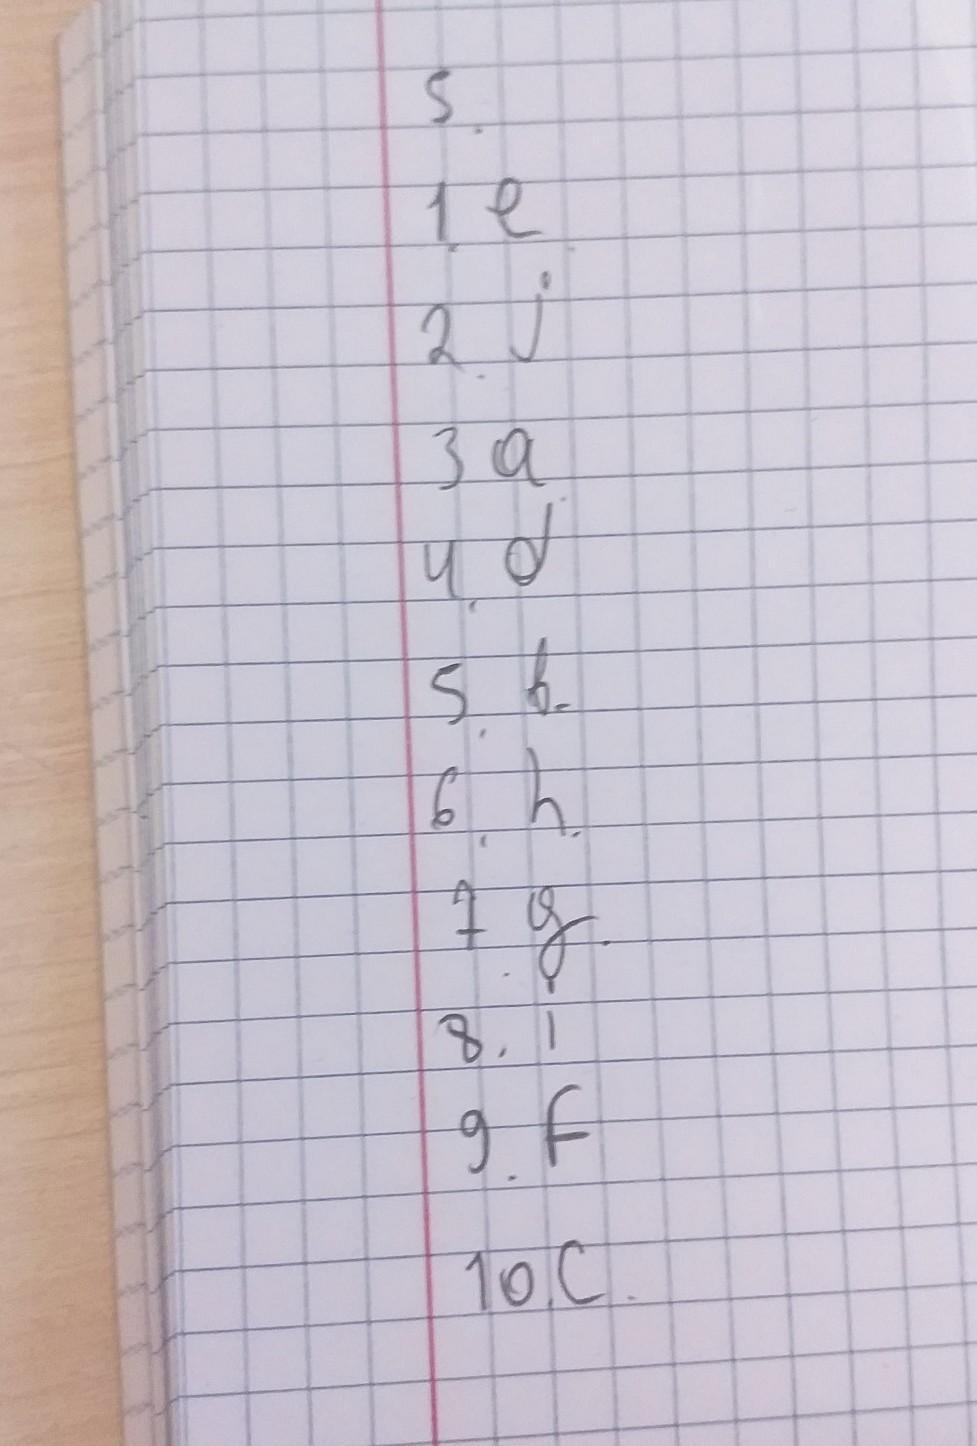 5.
1. e
2. j
3 a
4. d
5. b.
6. h.
7. g.
8. i
9. f
10. C.